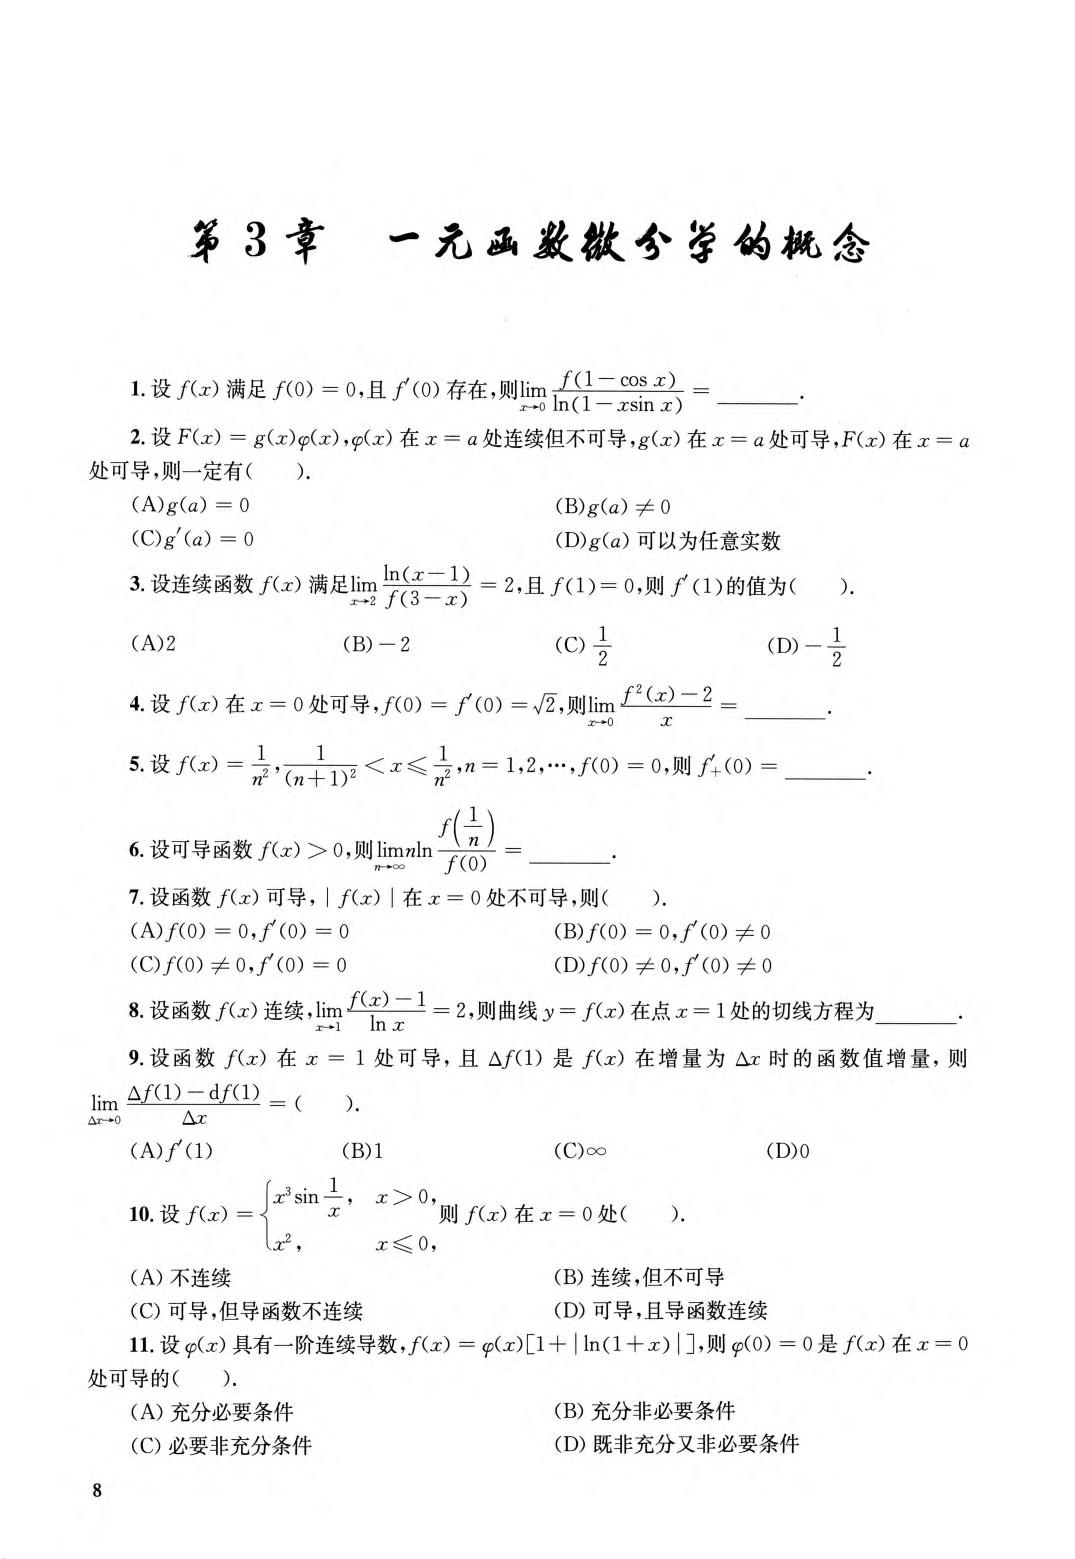 第 3 章 一元函数微分学的概念
1. 设 f(x) 满足 f(0) = 0,且 f′(0) 存在,则 lim_{x→0} f(1−cos x)/ln(1−xsin x) = ________.
2. 设 F(x) = g(x)φ(x),φ(x) 在 x = a 处连续但不可导,g(x) 在 x = a 处可导,F(x) 在 x = a
处可导,则一定有(   ).
(A)g(a) = 0 (B)g(a) ≠ 0
(C)g′(a) = 0 (D)g(a) 可以为任意实数
3. 设连续函数 f(x) 满足 lim_{x→2} ln(x−1)/f(3−x) = 2,且 f(1) = 0,则 f′(1)的值为(   ).
(A)2 (B)−2 (C)1/2 (D)−1/2
4. 设 f(x) 在 x = 0 处可导,f(0) = f′(0) = √2,则 lim_{x→0} (f²(x)−2)/x = ________.
5. 设 f(x) = 1/n², 1/(n+1)² < x ≤ 1/n², n = 1,2,⋯,f(0) = 0,则 f′₊(0) = ________.
6. 设可导函数 f(x) > 0,则 lim_{n→∞} nln f(1/n)/f(0) = ________.
7. 设函数 f(x) 可导,| f(x) | 在 x = 0 处不可导,则(   ).
(A)f(0) = 0,f′(0) = 0 (B)f(0) = 0,f′(0) ≠ 0
(C)f(0) ≠ 0,f′(0) = 0 (D)f(0) ≠ 0,f′(0) ≠ 0
8. 设函数 f(x) 连续,lim_{x→1} (f(x)−1)/ln x = 2,则曲线 y = f(x) 在点 x = 1 处的切线方程为________.
9. 设函数 f(x) 在 x = 1 处可导,且 Δf(1) 是 f(x) 在增量为 Δx 时的函数值增量,则
lim_{Δx→0} (Δf(1)−df(1))/Δx = (   ).
(A)f′(1) (B)1 (C)∞ (D)0
10. 设 f(x) = { x³sin 1/x, x > 0, x², x ≤ 0, 则 f(x) 在 x = 0 处(   ).
(A) 不连续 (B) 连续,但不可导
(C) 可导,但导函数不连续 (D) 可导,且导函数连续
11. 设 φ(x) 具有一阶连续导数,f(x) = φ(x)[1+|ln(1+x)|],则 φ(0) = 0 是 f(x) 在 x = 0
处可导的(   ).
(A) 充分必要条件 (B) 充分非必要条件
(C) 必要非充分条件 (D) 既非充分又非必要条件
8